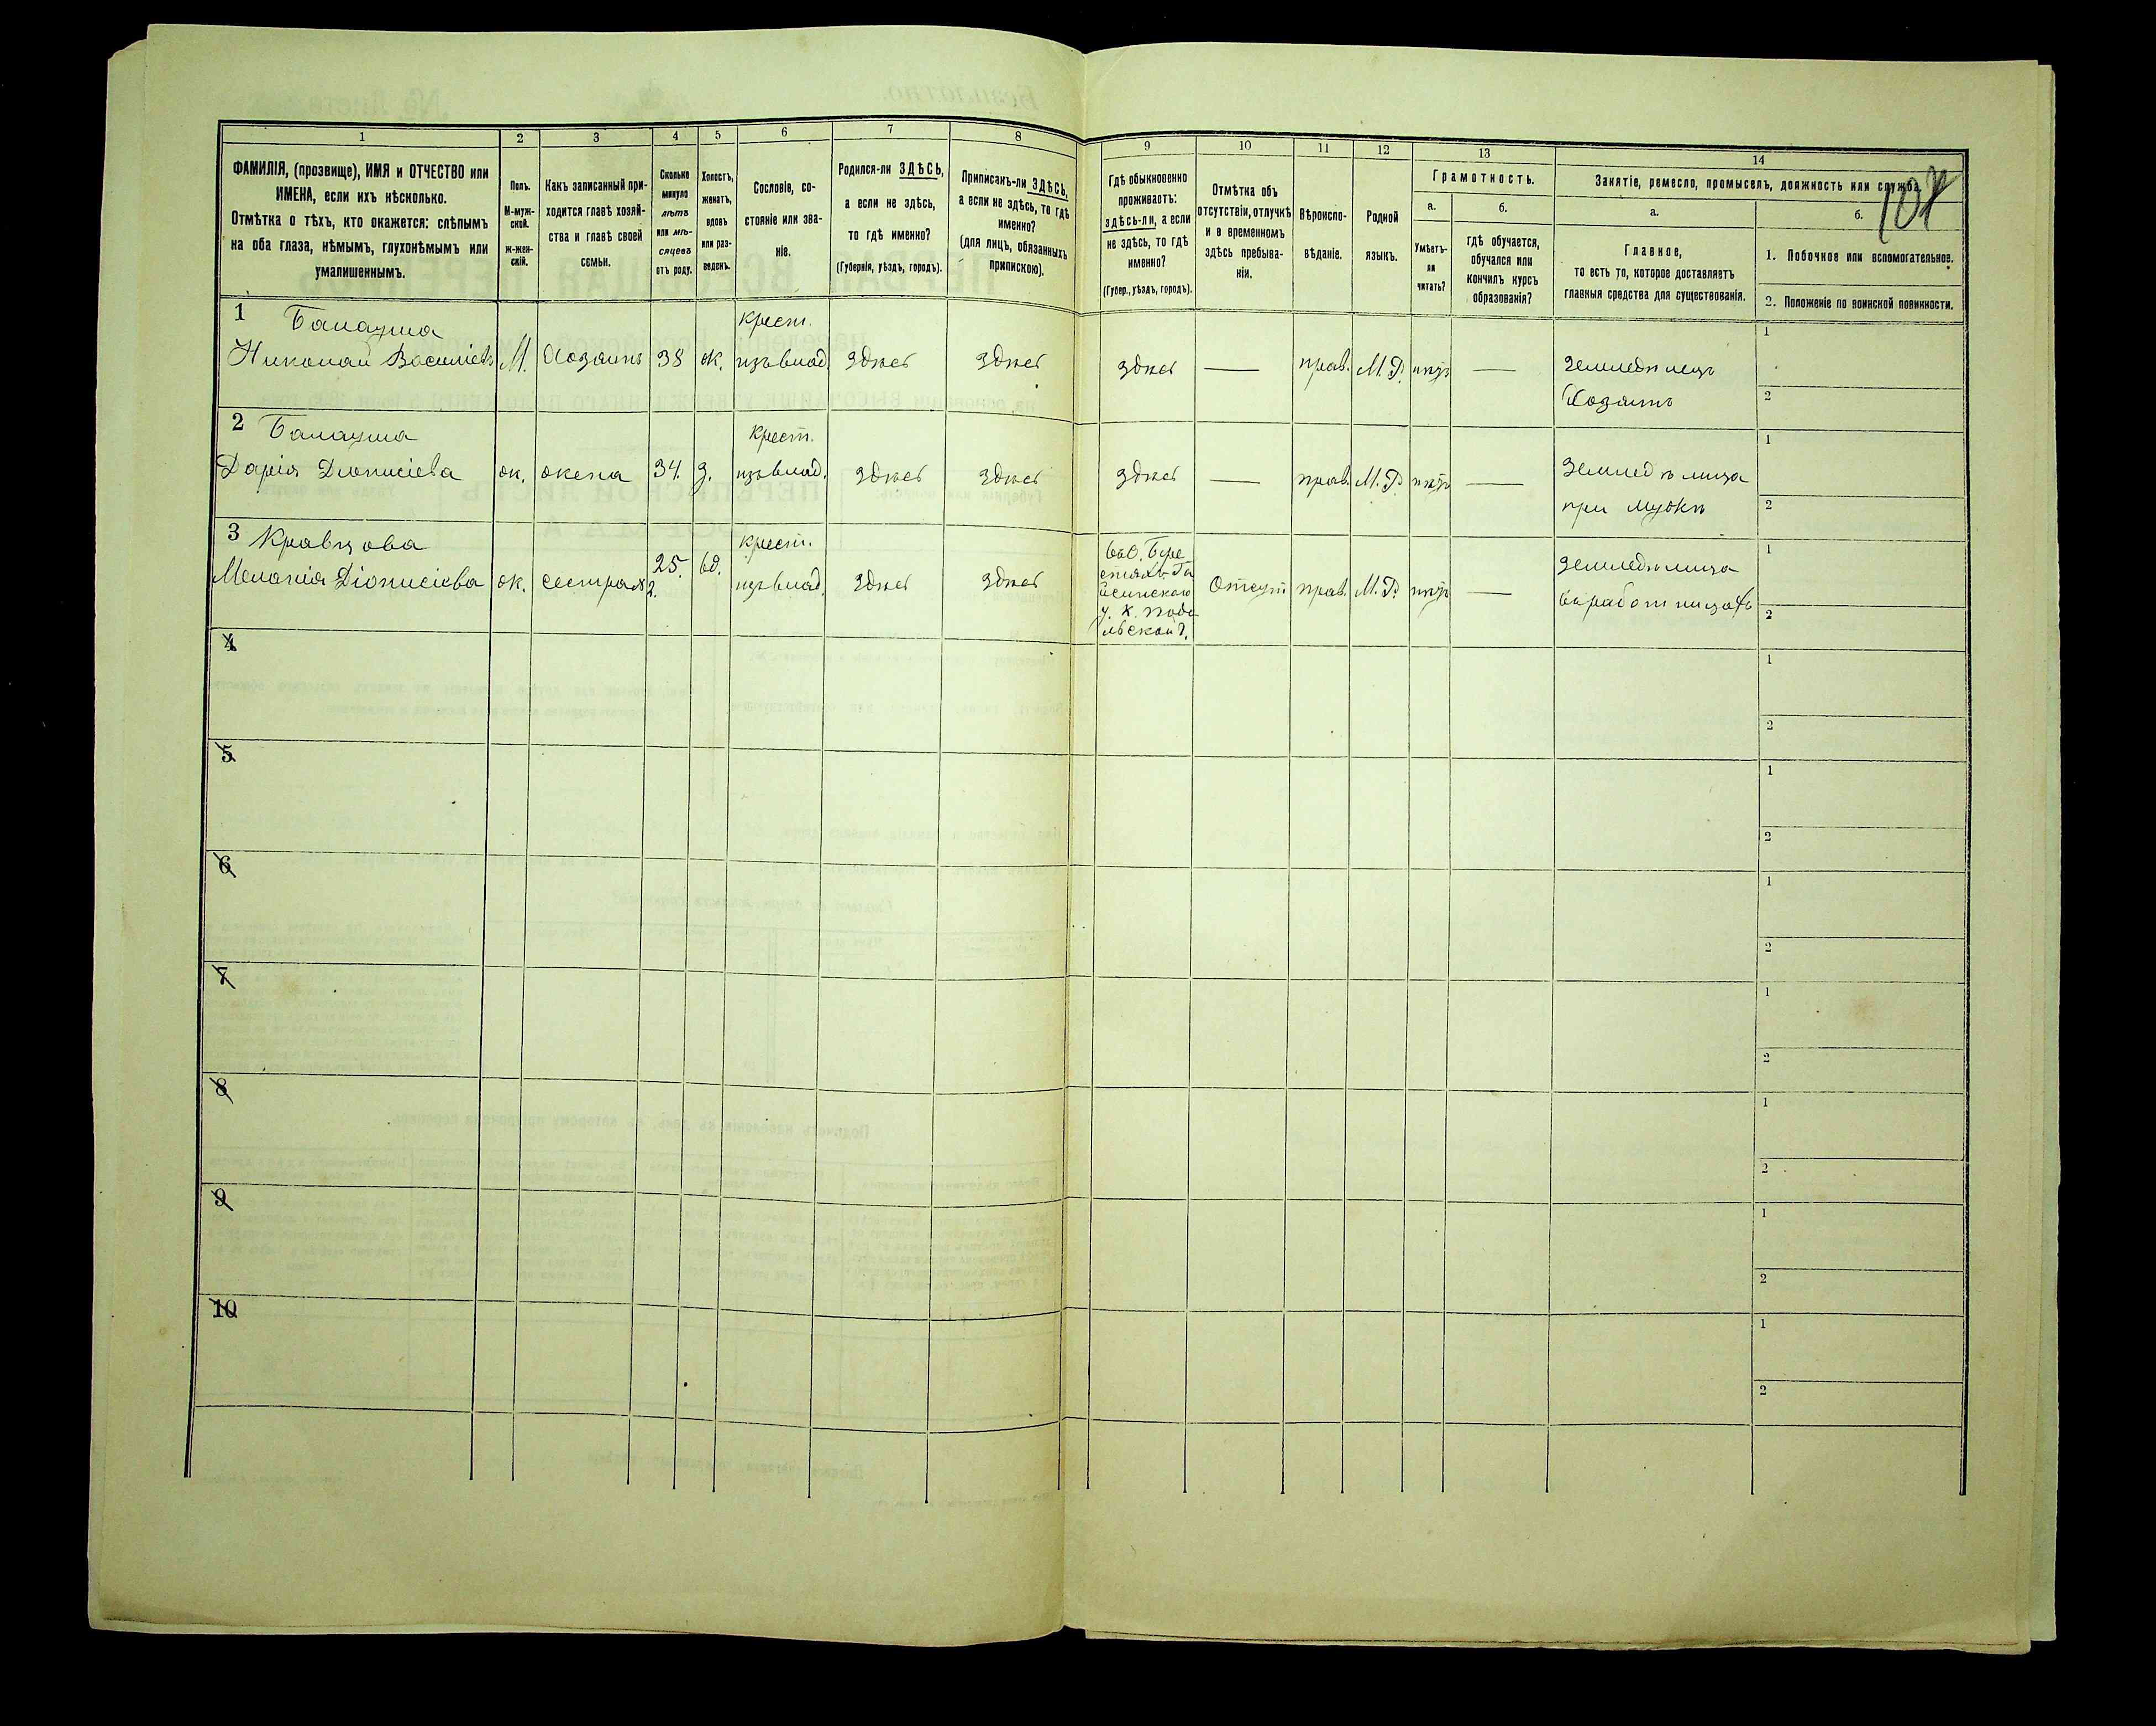 Безплатно.
№ Листа
107
1
2
3
4
5
6
7
8
9
10
11
12
13
14
ФАМИЛІЯ, (прозвище), ИМЯ и ОТЧЕСТВО или
ИМЕНА, если ихъ нѣсколько.
Отмѣтка о тѣхъ, кто окажется: слѣпымъ
на оба глаза, нѣмымъ, глухонѣмымъ или
умалишеннымъ.
Полъ.
М-муж-
ской.
ж-жен-
скій.
Какъ записанный при-
ходится главѣ хозяй-
ства и главѣ своей
семьи.
Сколько
минуло
лѣтъ
или мѣ-
сяцевъ
отъ роду.
Холостъ,
женатъ,
вдовъ
или раз-
веденъ.
Сословіе, со-
стояніе или зва-
ніе.
Родился-ли ЗДѢСЬ,
а если не здѣсь,
то гдѣ именно?
(Губернія, уѣздъ, городъ).
Приписанъ-ли ЗДѢСЬ,
а если не здѣсь, то гдѣ
именно?
(для лицъ, обязанныхъ
припискою).
Гдѣ обыкновенно
проживаетъ:
здѣсь-ли, а если
не здѣсь, то гдѣ
именно?
(Губер., уѣздъ, городъ).
Отмѣтка объ
отсутствіи, отлучкѣ
и о временномъ
здѣсь пребыва-
ніи.
Вѣроиспо-
вѣданіе.
Родной
языкъ.
Грамотность.
а.
Умѣетъ-
ли
читать?
б.
гдѣ обучается,
обучался или
кончилъ курсъ
образованія?
Занятіе, ремесло, промыселъ, должность или служба.
а.
Главное,
то есть то, которое доставляетъ
главныя средства для существованія.
б.
1. Побочное или вспомогательное.
2. Положеніе по воинской повинности.
1 Балауша
Николай Василіевъ М. Хозяинъ 38 ж. крест. изъ влад. здѣсь здѣсь здѣсь — прав. М.Р. нѣтъ — Земледѣлецъ
Хозяинъ
1
2
2 Балауша
Дарія Діонисіева ж. жена 34. з. крест. изъ влад. здѣсь здѣсь здѣсь — прав. М.Р. нѣтъ — Земледѣлица
при мужѣ
1
2
3 Кравцова
Меланія Діонисіева ж. сестра ж 2. 25. вд. крест. изъ влад. здѣсь здѣсь
Га
йсинского
у. К. Подо
льской г.
Отсут. прав. М.Р. нѣтъ — Земледѣлица
въ работницахъ
1
2
4
1
2
5
1
2
6
1
2
7
1
2
8
1
2
9
1
2
10
1
2